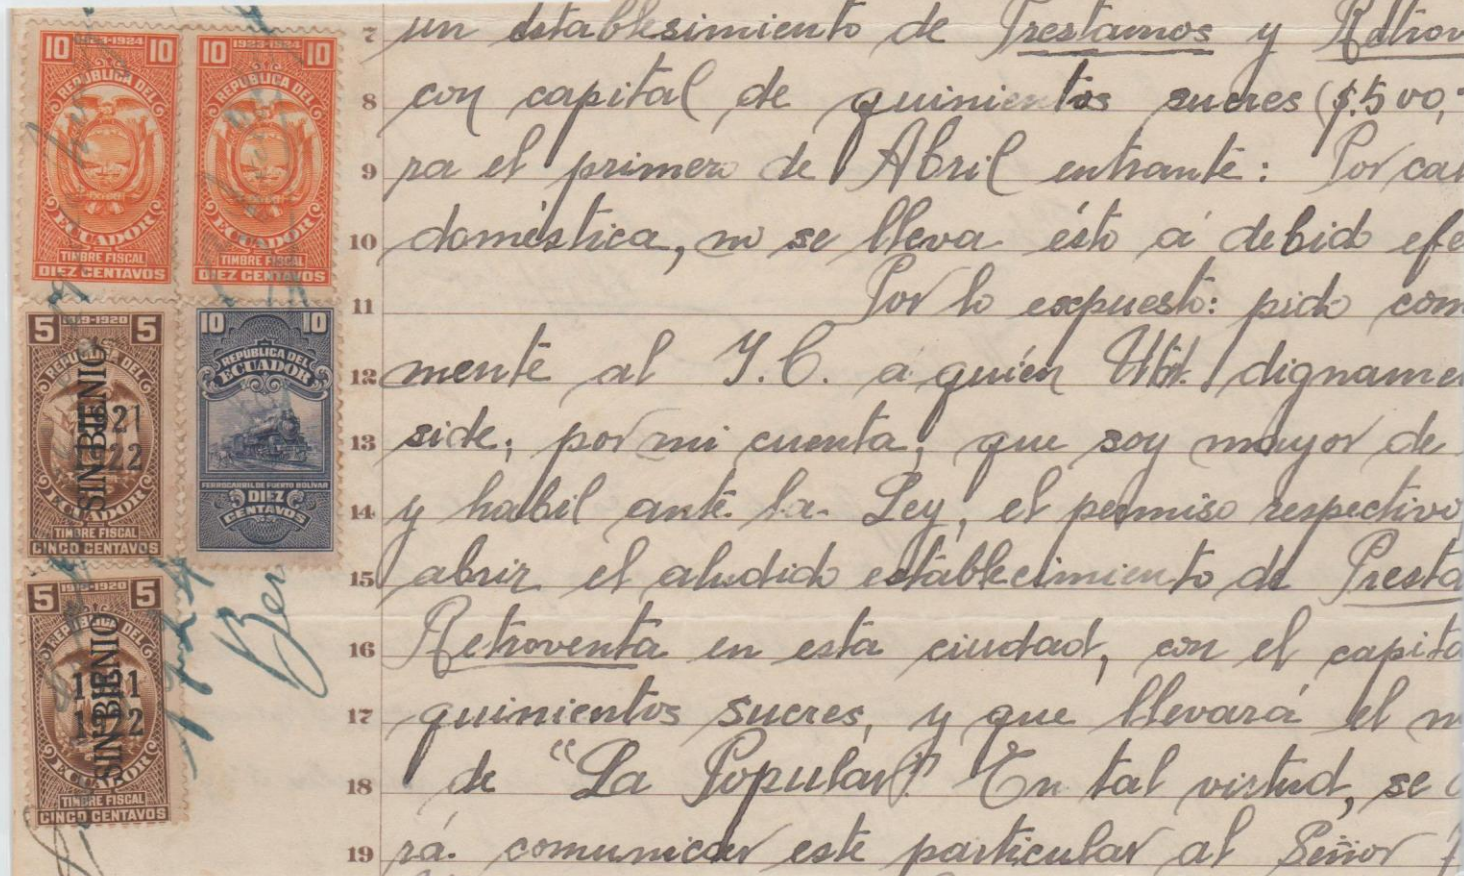 10 1923-1924 10
REPÚBLICA DEL
ECUADOR
TIMBRE FISCAL
DIEZ CENTAVOS
10 1923-1924 10
REPÚBLICA DEL
ECUADOR
TIMBRE FISCAL
DIEZ CENTAVOS
5 1919-1920 5
REPÚBLICA DEL
SIN BIENIO
1921
1922
ECUADOR
TIMBRE FISCAL
CINCO CENTAVOS
10 10
REPÚBLICA DEL
ECUADOR
FERROCARRIL DE PUERTO BOLIVAR
DIEZ
CENTAVOS
5 1919-1920 5
REPÚBLICA DEL
SIN BIENIO
1921
1922
ECUADOR
TIMBRE FISCAL
CINCO CENTAVOS
7 un establesimiento de Prestamos y Retrov
8 con capital de quinientos sucres ($.500,
9 ra el primero de Abril entrante: Por cau
10 doméstica, no se lleva ésto á debido efe
11 Por lo expuesto: pido com
12 mente al Y. C. a quién Ud. dignamen
13 side, por mi cuenta, que soy mayor de
14 y habil ante la Ley, el permiso respectivo
15 abrir el aludido establecimiento de Presta
16 Retroventa en esta ciudad, con el capita
17 quinientos sucres, y que llevará el n
18 de "La Popular" En tal virtud, se
19 rá comunicar este particular al Señor